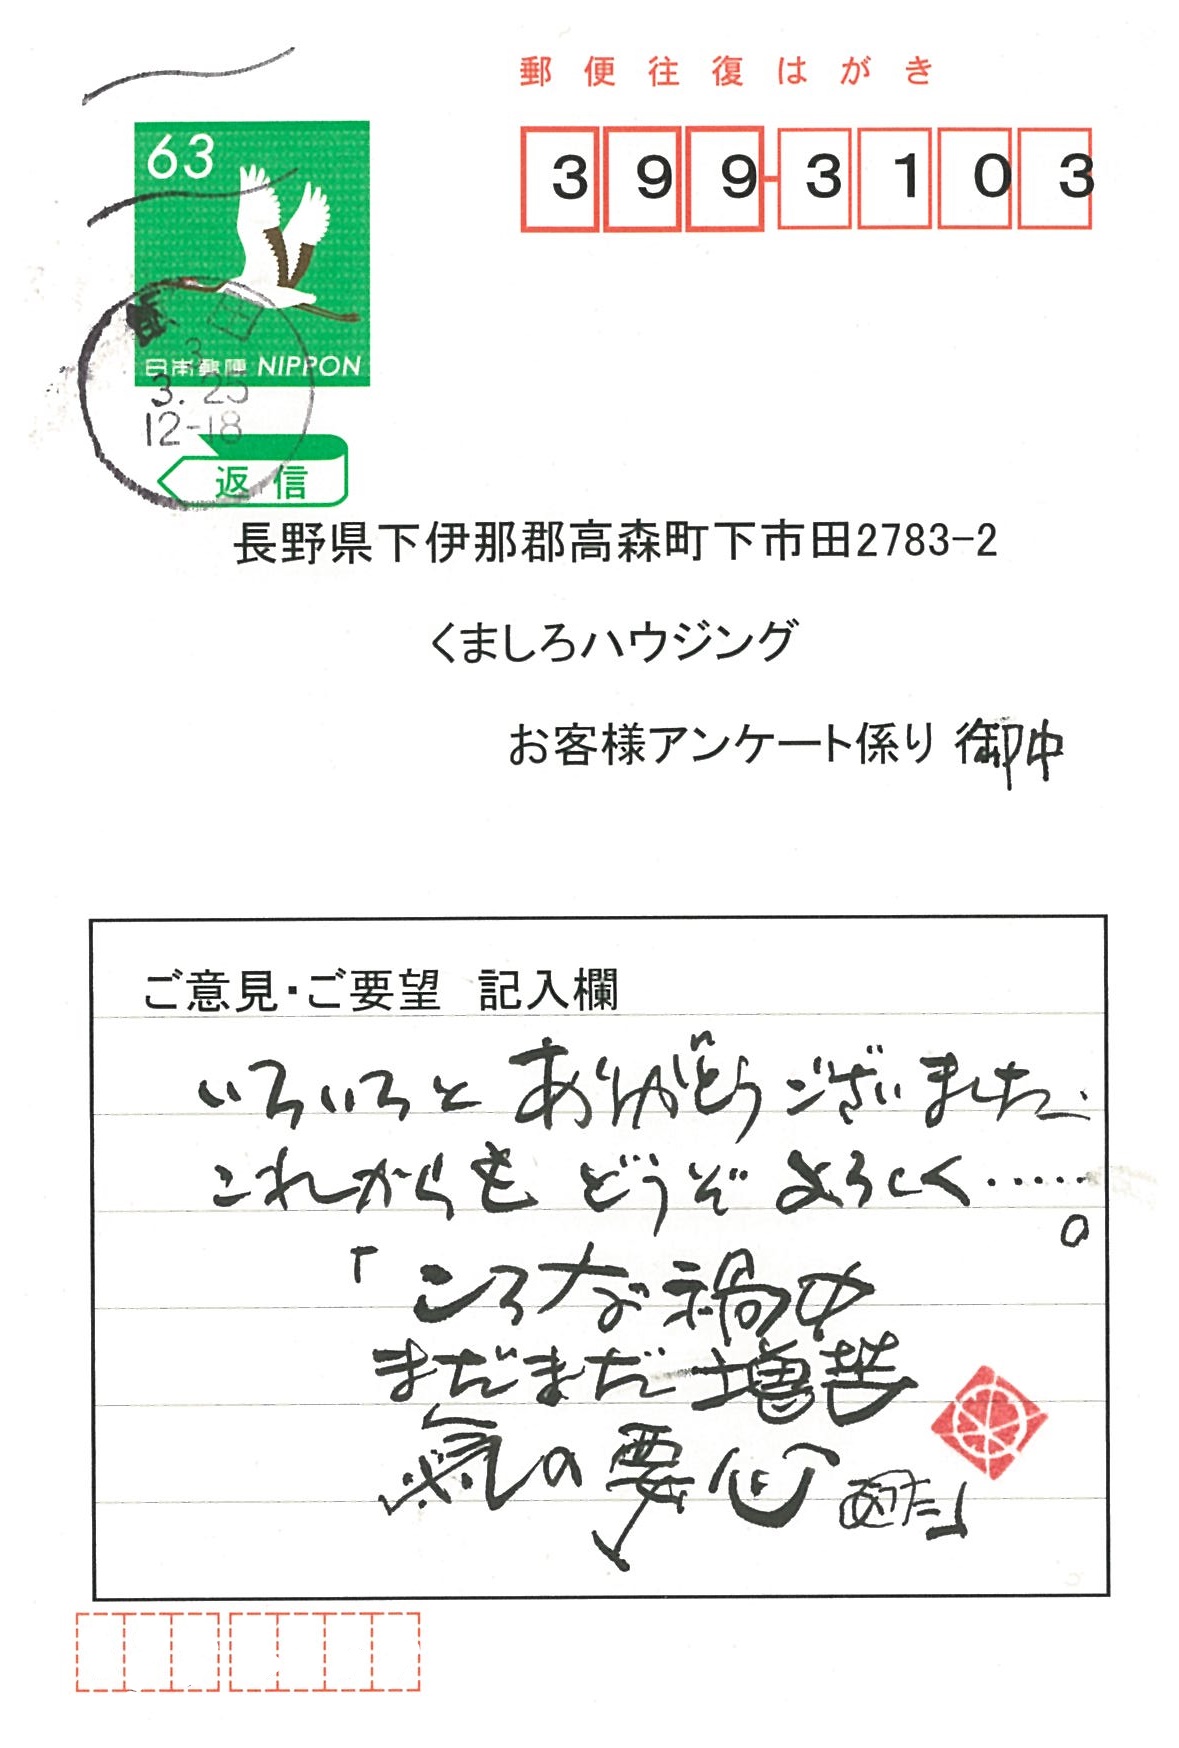 郵便往復はがき
63
399-3103
日本郵便 NIPPON
3
3.25
12-18
返信
長野県下伊那郡高森町下市田2783-2
くましろハウジング
お客様アンケート係り 御中
ご意見・ご要望 記入欄
いろいろと ありがとうございました、
これからも どうぞ よろしく……。
「ころなが禍中
まだまだ増苦
気の要心